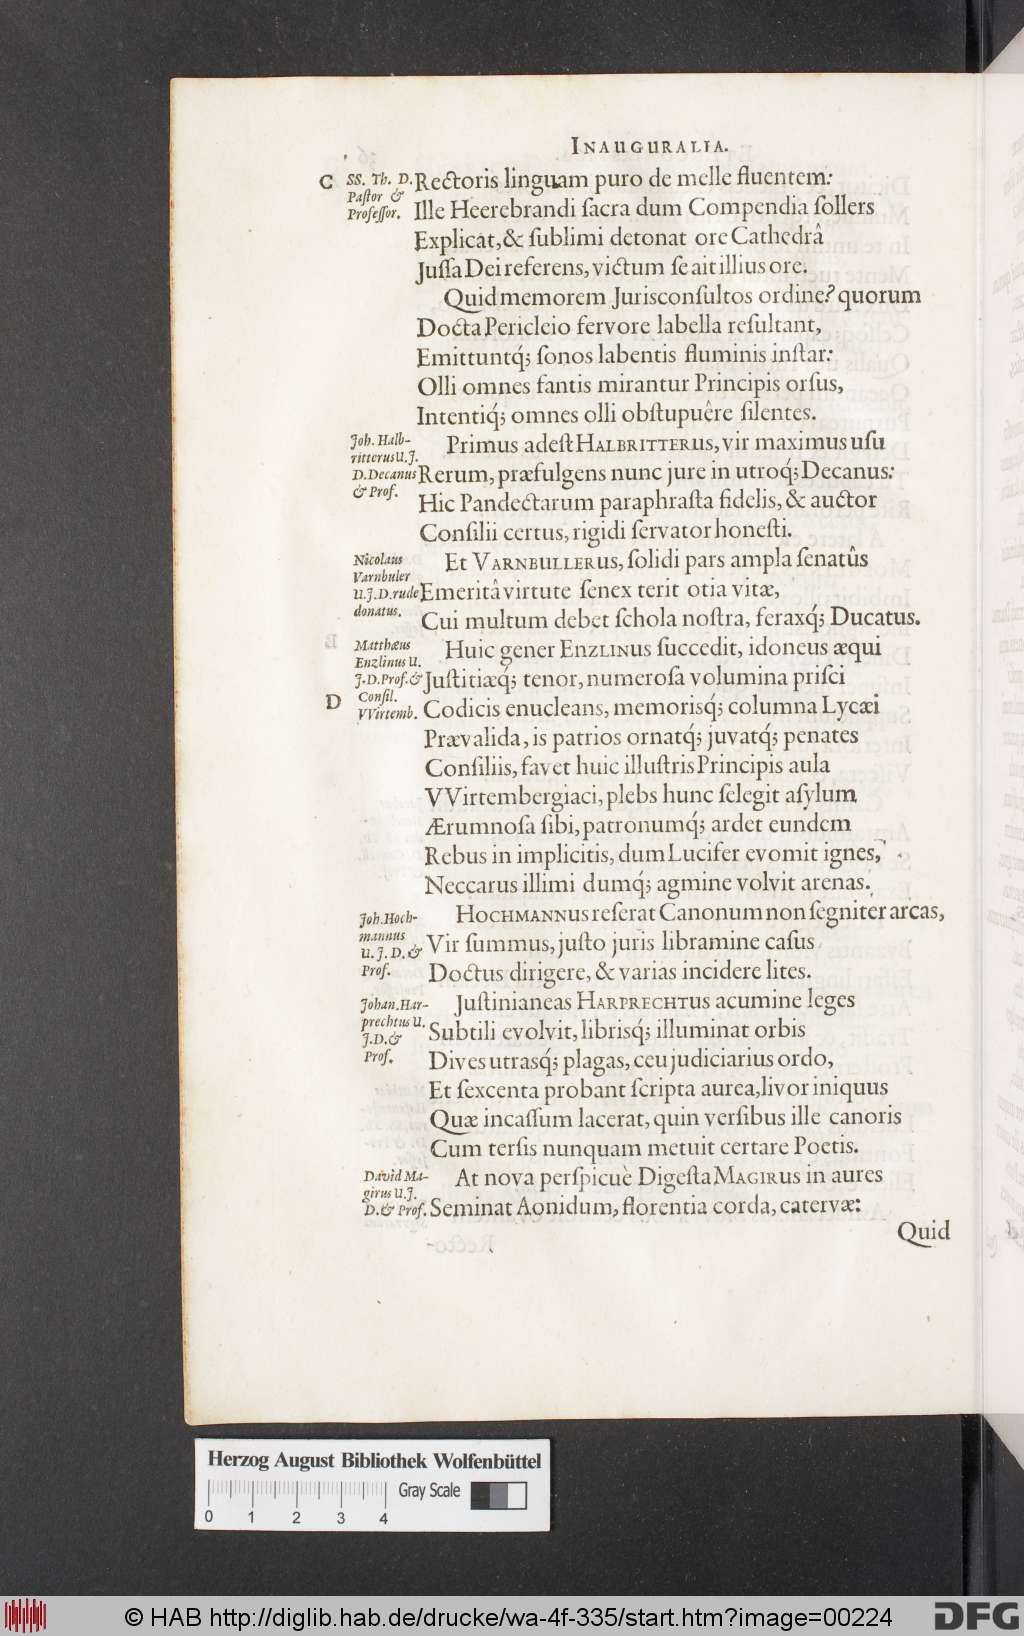 INAUGURALIA.
C SS. Th. D.
Paſtor &
Profeſſor.
Rectoris linguam puro de melle fluentem:
Ille Heerebrandi ſacra dum Compendia ſollers
Explicat, & ſublimi detonat ore Cathedrâ
Juſſa Dei referens, victum ſe ait illius ore.
Quid memorem Jurisconſultos ordine? quorum
Docta Pericleio fervore labella reſultant,
Emittuntq́; ſonos labentis fluminis inſtar:
Olli omnes fantis mirantur Principis orſus,
Intentiq́; omnes olli obſtupuêre ſilentes.
Joh. Halb-
ritterus U. J.
D. Decanus
& Prof.
Primus adeſt HALBRITTERUS, vir maximus uſu
Rerum, præfulgens nunc jure in utroq́; Decanus:
Hic Pandectarum paraphraſta fidelis, & auctor
Conſilii certus, rigidi ſervator honeſti.
Nicolaus
Varnbuler
U. J. D. rude
donatus.
Et VARNBULLERUS, ſolidi pars ampla ſenatûs
Emeritâ virtute ſenex terit otia vitæ,
Cui multum debet ſchola noſtra, feraxq́; Ducatus.
Matthæus
Enzlinus U.
J. D. Prof. &
Conſil.
VVirtemb.
Huic gener ENZLINUS ſuccedit, idoneus æqui
Juſtitiæq́; tenor, numeroſa volumina priſci
D Codicis enucleans, memorisq́; columna Lycæi
Prævalida, is patrios ornatq́; juvatq́; penates
Conſiliis, favet huic illuſtris Principis aula
VVirtembergiaci, plebs hunc ſelegit aſylum
Ærumnoſa ſibi, patronumq́; ardet eundem
Rebus in implicitis, dum Lucifer evomit ignes,
Neccarus illimi dumq́; agmine volvit arenas.
Joh. Hoch-
mannus
U. J. D. &
Prof.
HOCHMANNUS reſerat Canonum non ſegniter arcas,
Vir ſummus, juſto juris libramine caſus
Doctus dirigere, & varias incidere lites.
Johan. Har-
prechtus U.
J. D. &
Prof.
Juſtinianeas HARPRECHTUS acumine leges
Subtili evolvit, librisq́; illuminat orbis
Dives utrasq́; plagas, ceu judiciarius ordo,
Et ſexcenta probant ſcripta aurea, livor iniquus
Quæ incaſſum lacerat, quin verſibus ille canoris
Cum terſis nunquam metuit certare Poetis.
David Ma-
girus U. J.
D. & Prof.
At nova perſpicuè Digeſta MAGIRUS in aures
Seminat Aonidum, florentia corda, catervæ:
Quid
Herzog August Bibliothek Wolfenbüttel
Gray Scale
0 1 2 3 4
© HAB http://diglib.hab.de/drucke/wa-4f-335/start.htm?image=00224
DFG